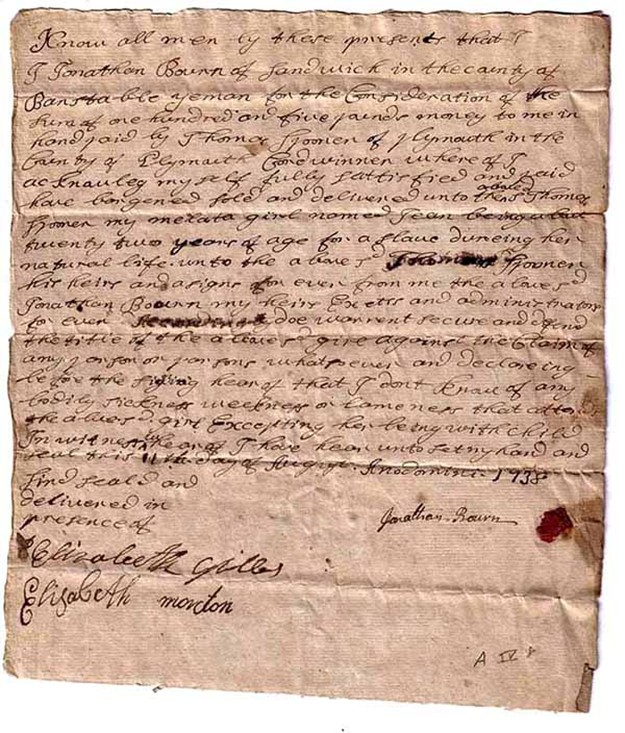 Know all men by these presents that I
I Jonathan Bourn of Sandwich in the county of
Banstable yeman for the Consideration of the
Sum of one hundred and five pounds money to me in
hand paid by Thomas Spooner of plymouth in the
County of Plymouth Cordwinner where of I
acKnauleg my self fully sattisfied and paid
have bargened sold and delivered unto aboves'd Thomas
Spooner my melata girl named Jean being about
twenty two years of age for a slave dureing her
natural life. unto the aboves'd Thomas Spooner
his heirs and asigns for ever from me the aboves'd
Jonathan Bourn my heirs Exects and administrators
for ever doe warrent secure and defend
the title of the aboves'd girl against the Claim of
any parson or parsons whatsoever and declareing
before the hear of that I dont Know of any
bodily sickness weekness or lameness that
the aboves'd girl Excepting her being with child
In witness whear of I have hear unto set my hand and
seal this 11th day of August. Anodomini. 1738
Sind seald and
delivered in
presence of
Jonathan Bourn
Elizabeth Gilles
Elizabeth morton
A IV 8